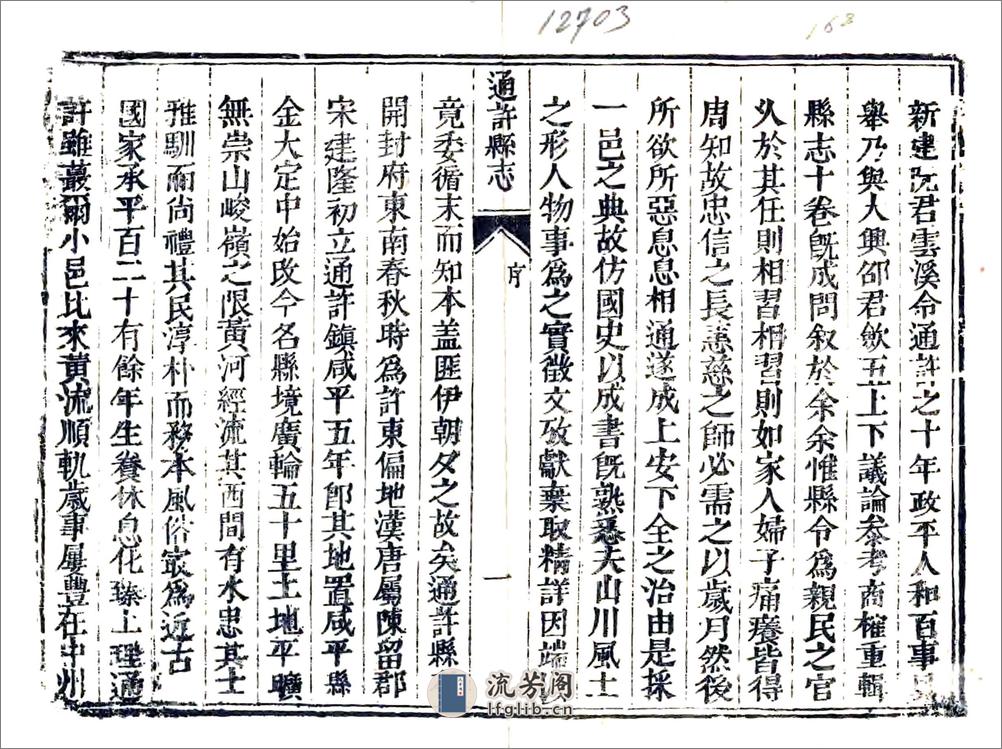 12703
168
新建阮君雲溪令通許之十年政平人和百事
舉乃與大興邵君歛五上下議論參考商榷重輯
縣志十卷旣成問叙於余余惟縣令爲親民之官
久於其任則相習相習則如家人婦子痛癢皆得
周知故忠信之長惠慈之師必需之以歲月然後
所欲所惡息息相通遂成上安下全之治由是採
一邑之典故仿國史以成書旣熟悉夫山川風土
之形人物事爲之實徵文攷獻棄取精詳因端
通許縣志
序
一
竟委循末而知本盖匪伊朝夕之故矣通許縣
開封府東南春秋時爲許東偏地漢唐屬陳留郡
宋建隆初立通許鎮咸平五年卽其地置咸平縣
金大定中始改今名縣境廣輪五十里土地平曠
無崇山峻嶺之限黃河經流其西間有水患其士
雅馴而尚禮其民淳朴而務本風俗㝡爲近古
國家承平百二十有餘年生養休息化臻上理通
許雖蕞爾小邑比來黃流順軌歲事屢豐在中州
流芳阁
lfglib.cn